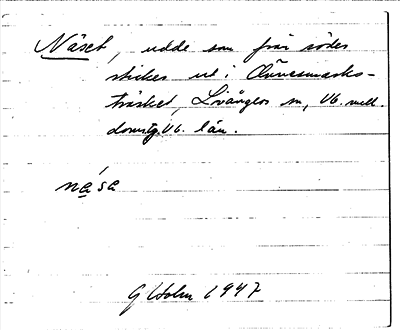 Näset, udde som från söder
sticker ut i Önnesmarks-
träsket, Lövångers sn, Vb. mell.
domsg. Vb. län.
nása
G Holm 1947